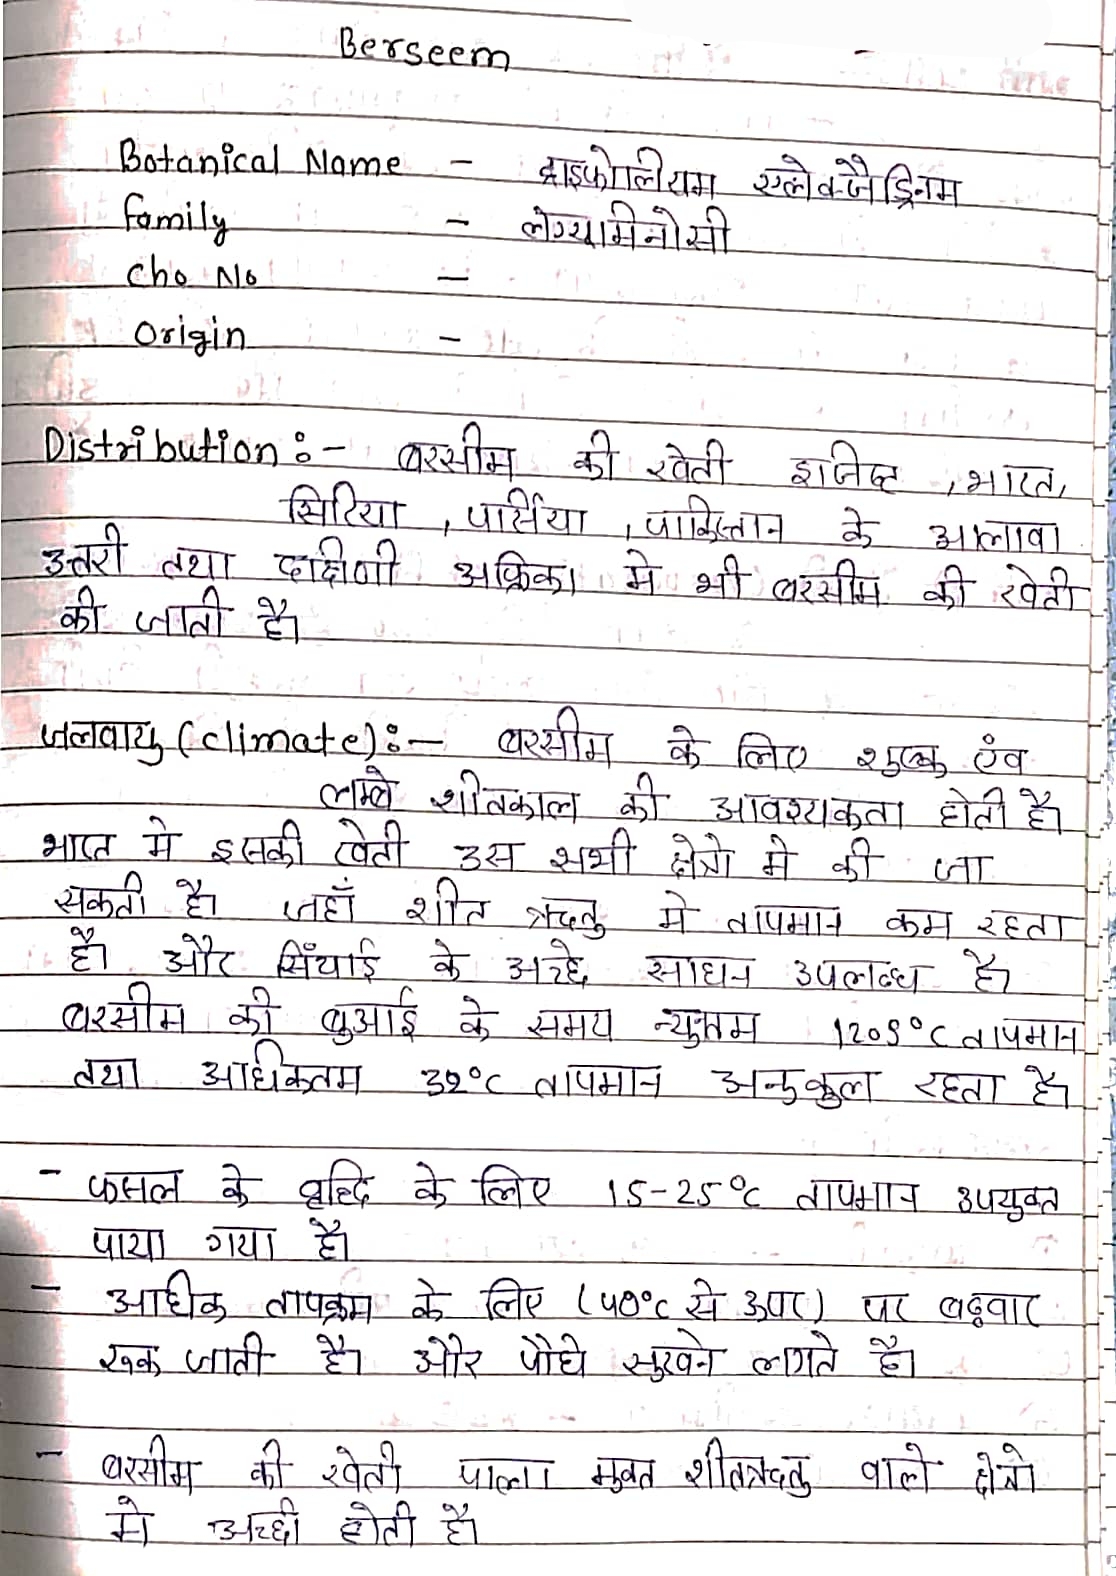 Berseem
Botanical Name - ट्राइफोलियम एलेक्जैंड्रिनम
family - लेग्यामिनोसी
Cho No -
Origin -
Distribution :- बरसीम की खेती इजिप्ट , भारत,
सिरिया , पार्सिया , पाकिस्तान के अलावा
उत्तरी तथा दक्षिणी अफ्रिका मे भी बरसीम की खेती
की जाती है।
जलवायु (climate) :- बरसीम के लिए शुष्क एंव
लम्बे शीतकाल की आवश्यकता होती है।
भारत मे इसकी खेती उस सभी क्षेत्रो मे की जा
सकती है। जहाँ शीत ऋतु मे तापमान कम रहता
है। और सिंचाई के अच्छे साधन उपलब्ध है।
बरसीम की बुआई के समय न्युनतम 1205°C तापमान
तथा अधिकतम 32°C तापमान अनुकुल रहता है।
- फसल के वृद्धि के लिए 15-25°C तापमान उपयुक्त
पाया गया है।
- अधिक तापक्रम के लिए (40°C से ऊपर) पर बढ़वार
रूक जाती है। और पौधे सुखने लगते है।
- बरसीम की खेती पाला मुक्त शीतऋतु वाले क्षेत्रो
मे अच्छी होती है।